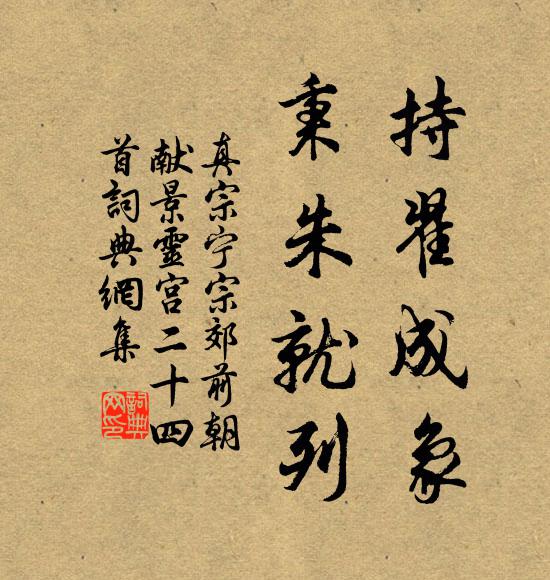 持翟成象
秉朱就列
真宗宁宗郊前朝
献景靈宫二十四
首詞典網集
詞典
网印